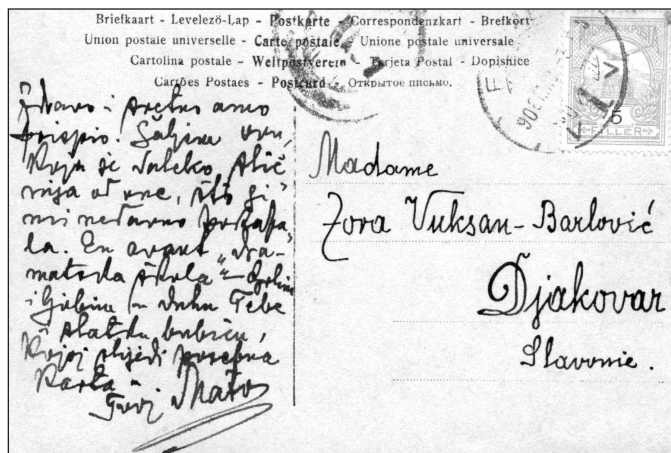 Briefkaart - Levelező-Lap - Postkarte - Correspondenzkart - Brefkort
Union postale universelle - Carte postale - Unione postale universale
Cartolina postale - Weltpostverein - Tarjeta Postal - Dopisnice
Cartões Postaes - Postcard - Открытое письмо.
Zdravo i sretno amo
prispio. Šaljem vru,
koja je daleko slič
nija od one, što si
mi nedavno poslala
la. En avant
škola"
i ljubim Tebe
i slatku bubicu,
kojoj slijedi posebna
karta
Tvoj Mato
Madame
Zora Vuksan-Barlović
Djakovar
Slavonie.
5
FILLER